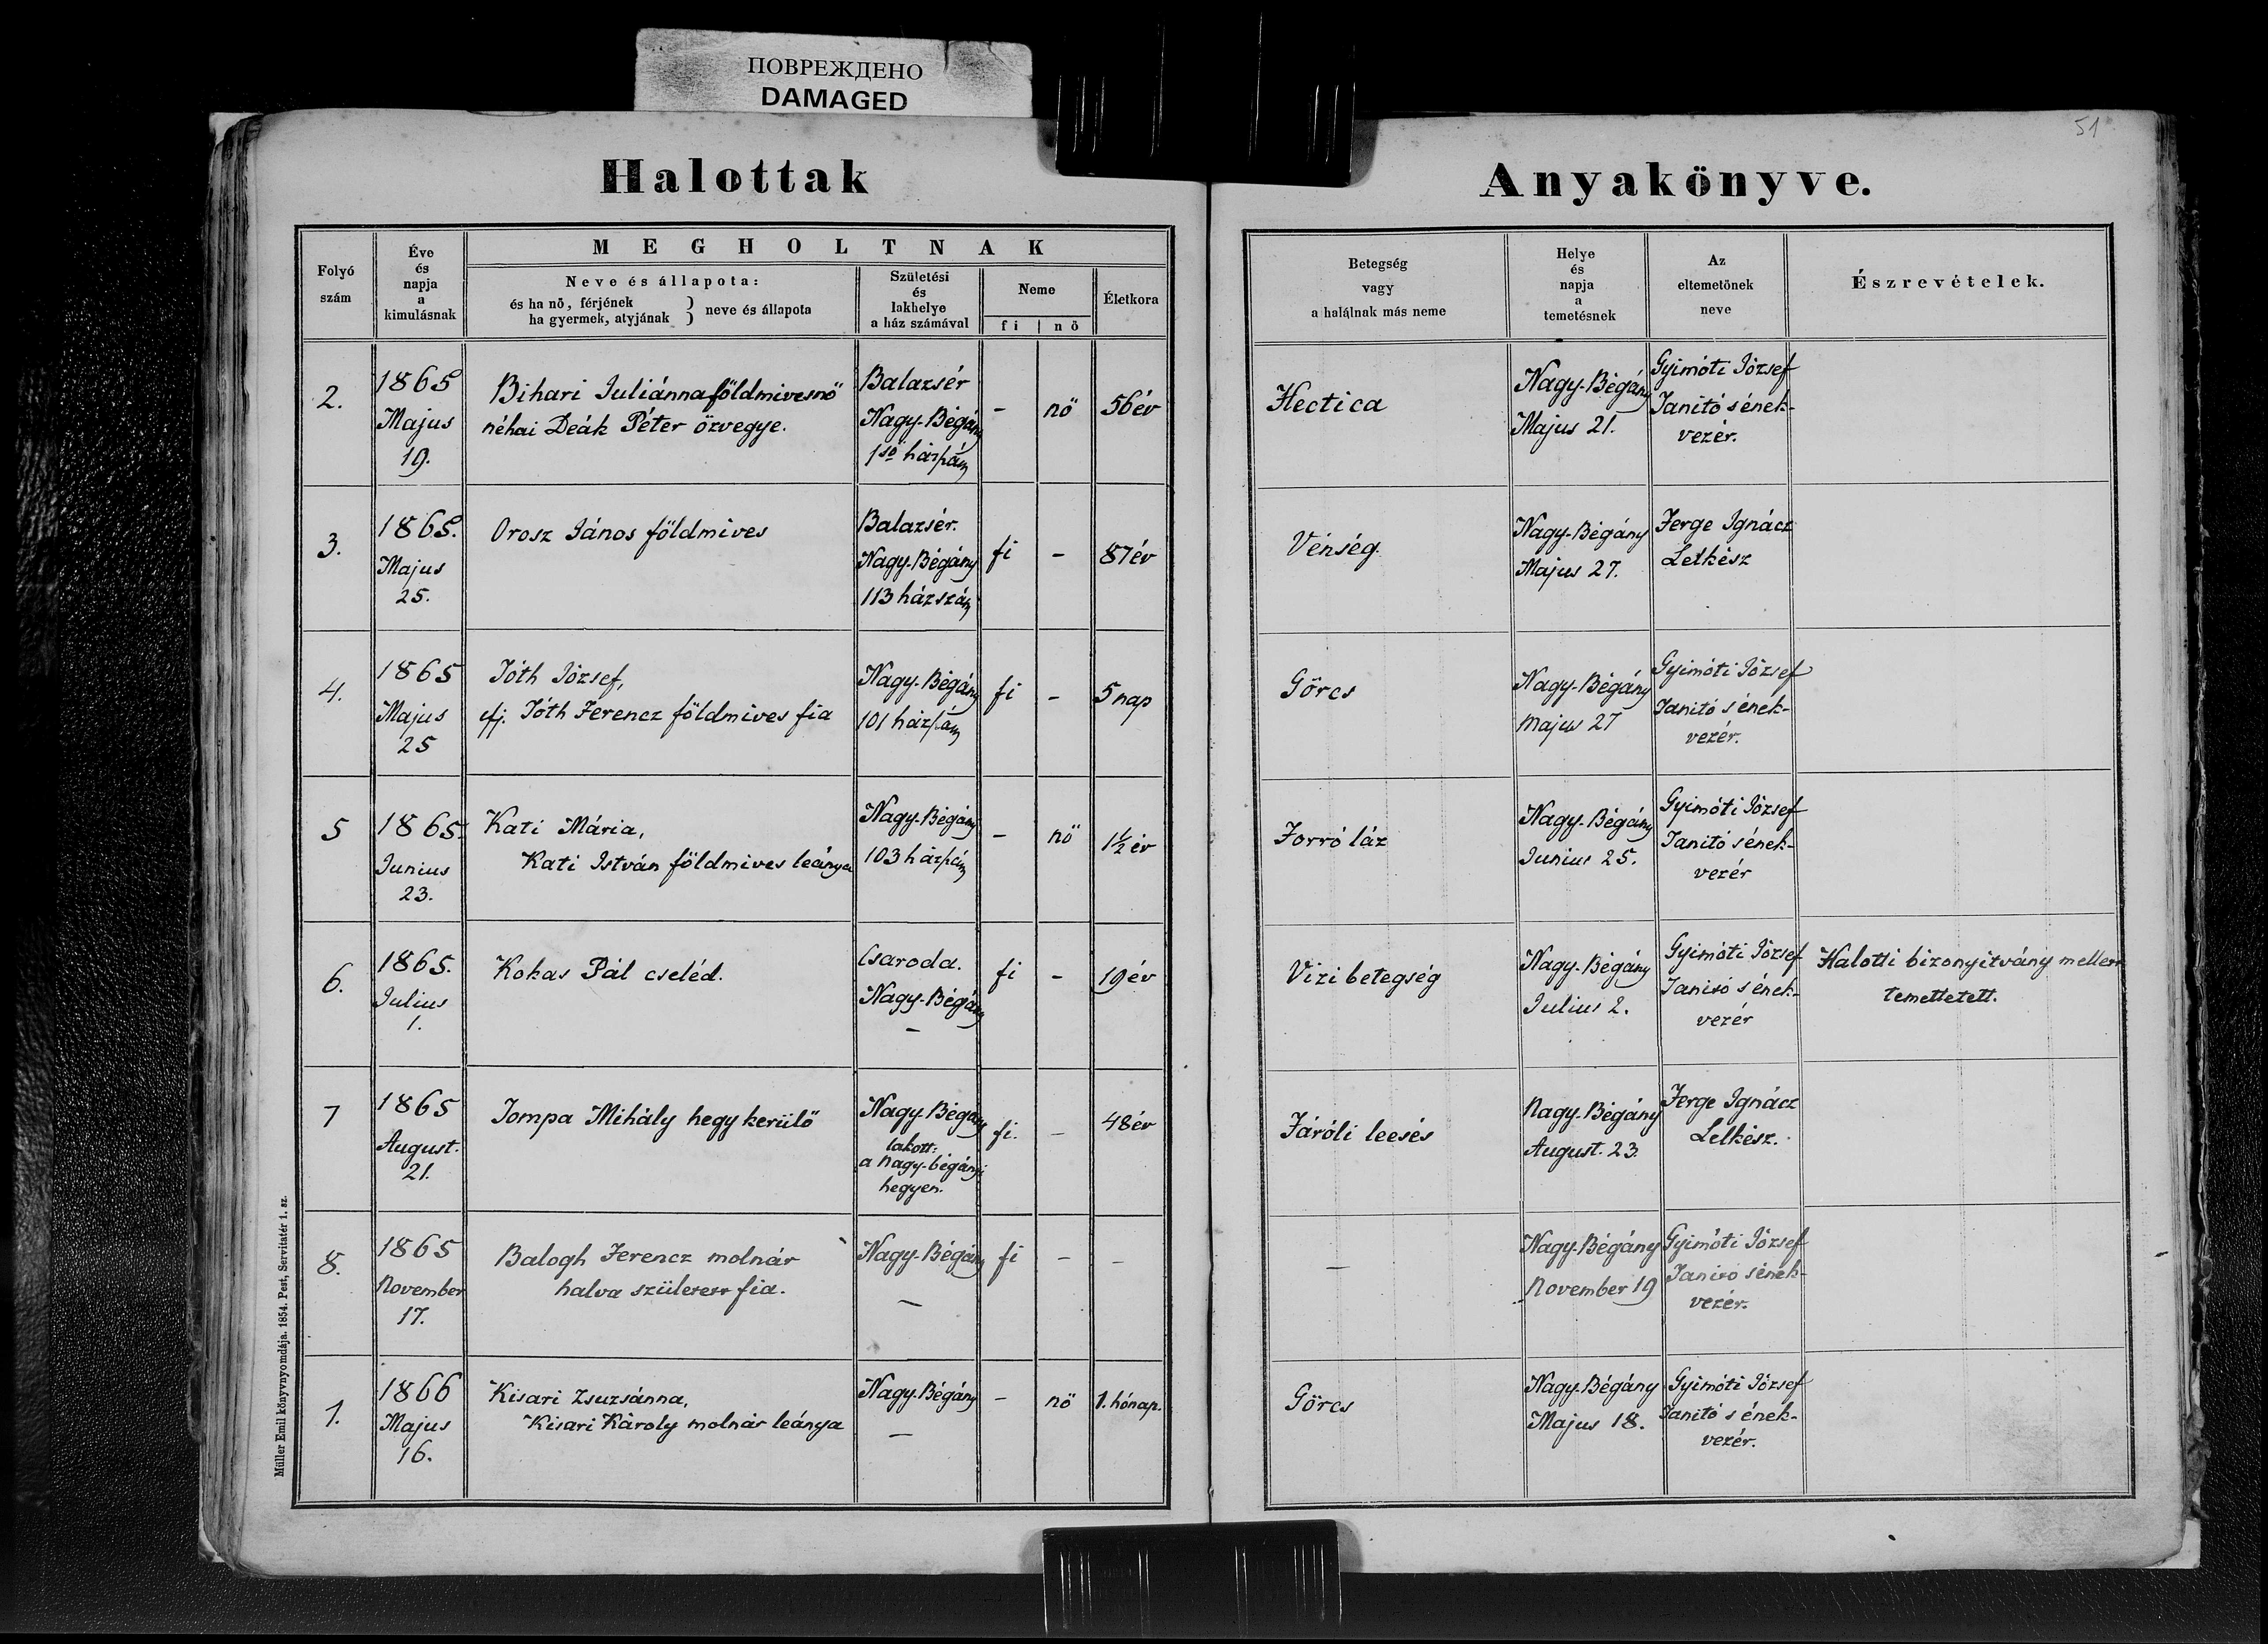 ПОВРЕЖДЕНО
DAMAGED
51
Halottak
Anyakönyve.
Folyó
szám
Éve
és
napja
a
kimulásnak
MEGHOLTNAK
Neve és állapota:
és ha nő, férjének
ha gyermek, atyjának
neve és állapota
Születési
és
lakhelye
a ház számával
Neme
fi | nő
Életkora
Betegség
vagy
a halálnak más neme
Helye
és
napja
a
temetésnek
Az
eltemetőnek
neve
Észrevételek.
2.
1865
Majus
19.
Bihari Juliánna földmivesnő
néhai Deák Péter özvegye.
Balazsér
Nagy-Bégány
1ső házszám
-
nő
56 év
Hectica
Nagy-Bégány
Majus 21.
Gyimóti József
Tanitó s ének-
vezér.
3.
1865.
Majus
25.
Orosz János földmives
Balazsér.
Nagy-Bégány
113 házszám
fi
-
87 év
Vénség.
Nagy-Bégány
Majus 27.
Ferge Ignácz
Lelkész
4.
1865
Majus
25
Tóth József,
ifj. Tóth Ferencz földmives fia
Nagy-Bégány
101 házszám
fi
-
5 nap
Görcs
Nagy-Bégány
Majus 27
Gyimóti József
Tanitó s ének-
vezér.
5
1865.
Junius
23.
Kati Mária,
Kati István földmives leánya
Nagy-Bégány
103 házszám
-
nő
1½ év
Forró láz
Nagy-Bégány
Junius 25.
Gyimóti József
Tanitó s ének-
vezér
6.
1865.
Julius
1.
Kokas Pál cseléd.
Csaroda.
Nagy-Bégány
-
fi
-
19 év
Vizi betegség
Nagy-Bégány
Julius 2.
Gyimóti József
Tanitó s ének-
vezér
Halotti bizonyitvány mellett
temettetett.
7
1865
August.
21.
Tompa Mihály hegykerülő
Nagy Bégány
lakott:
a Nagy-bégányi
hegyen.
fi.
-
48 év
Fáróli leesés
Nagy-Bégány
August. 23.
Ferge Ignácz
Lelkész.
8.
1865
November
17.
Balogh Ferencz molnár
halva született fia.
Nagy-Bégány
-
fi
-
-
-
Nagy-Bégány
November 19
Gyimóti József
Tanitó s ének-
vezér.
1.
1866
Majus
16.
Kisari Zsuzsánna,
Kisari Károly molnár leánya
Nagy-Bégány
-
-
nő
1. hónap.
Görcs
Nagy-Bégány
Majus 18.
Gyimóti József
Tanitó s ének-
vezér.
Müller Emil könyvnyomdája. 1854. Pest, Servitatér 1. sz.